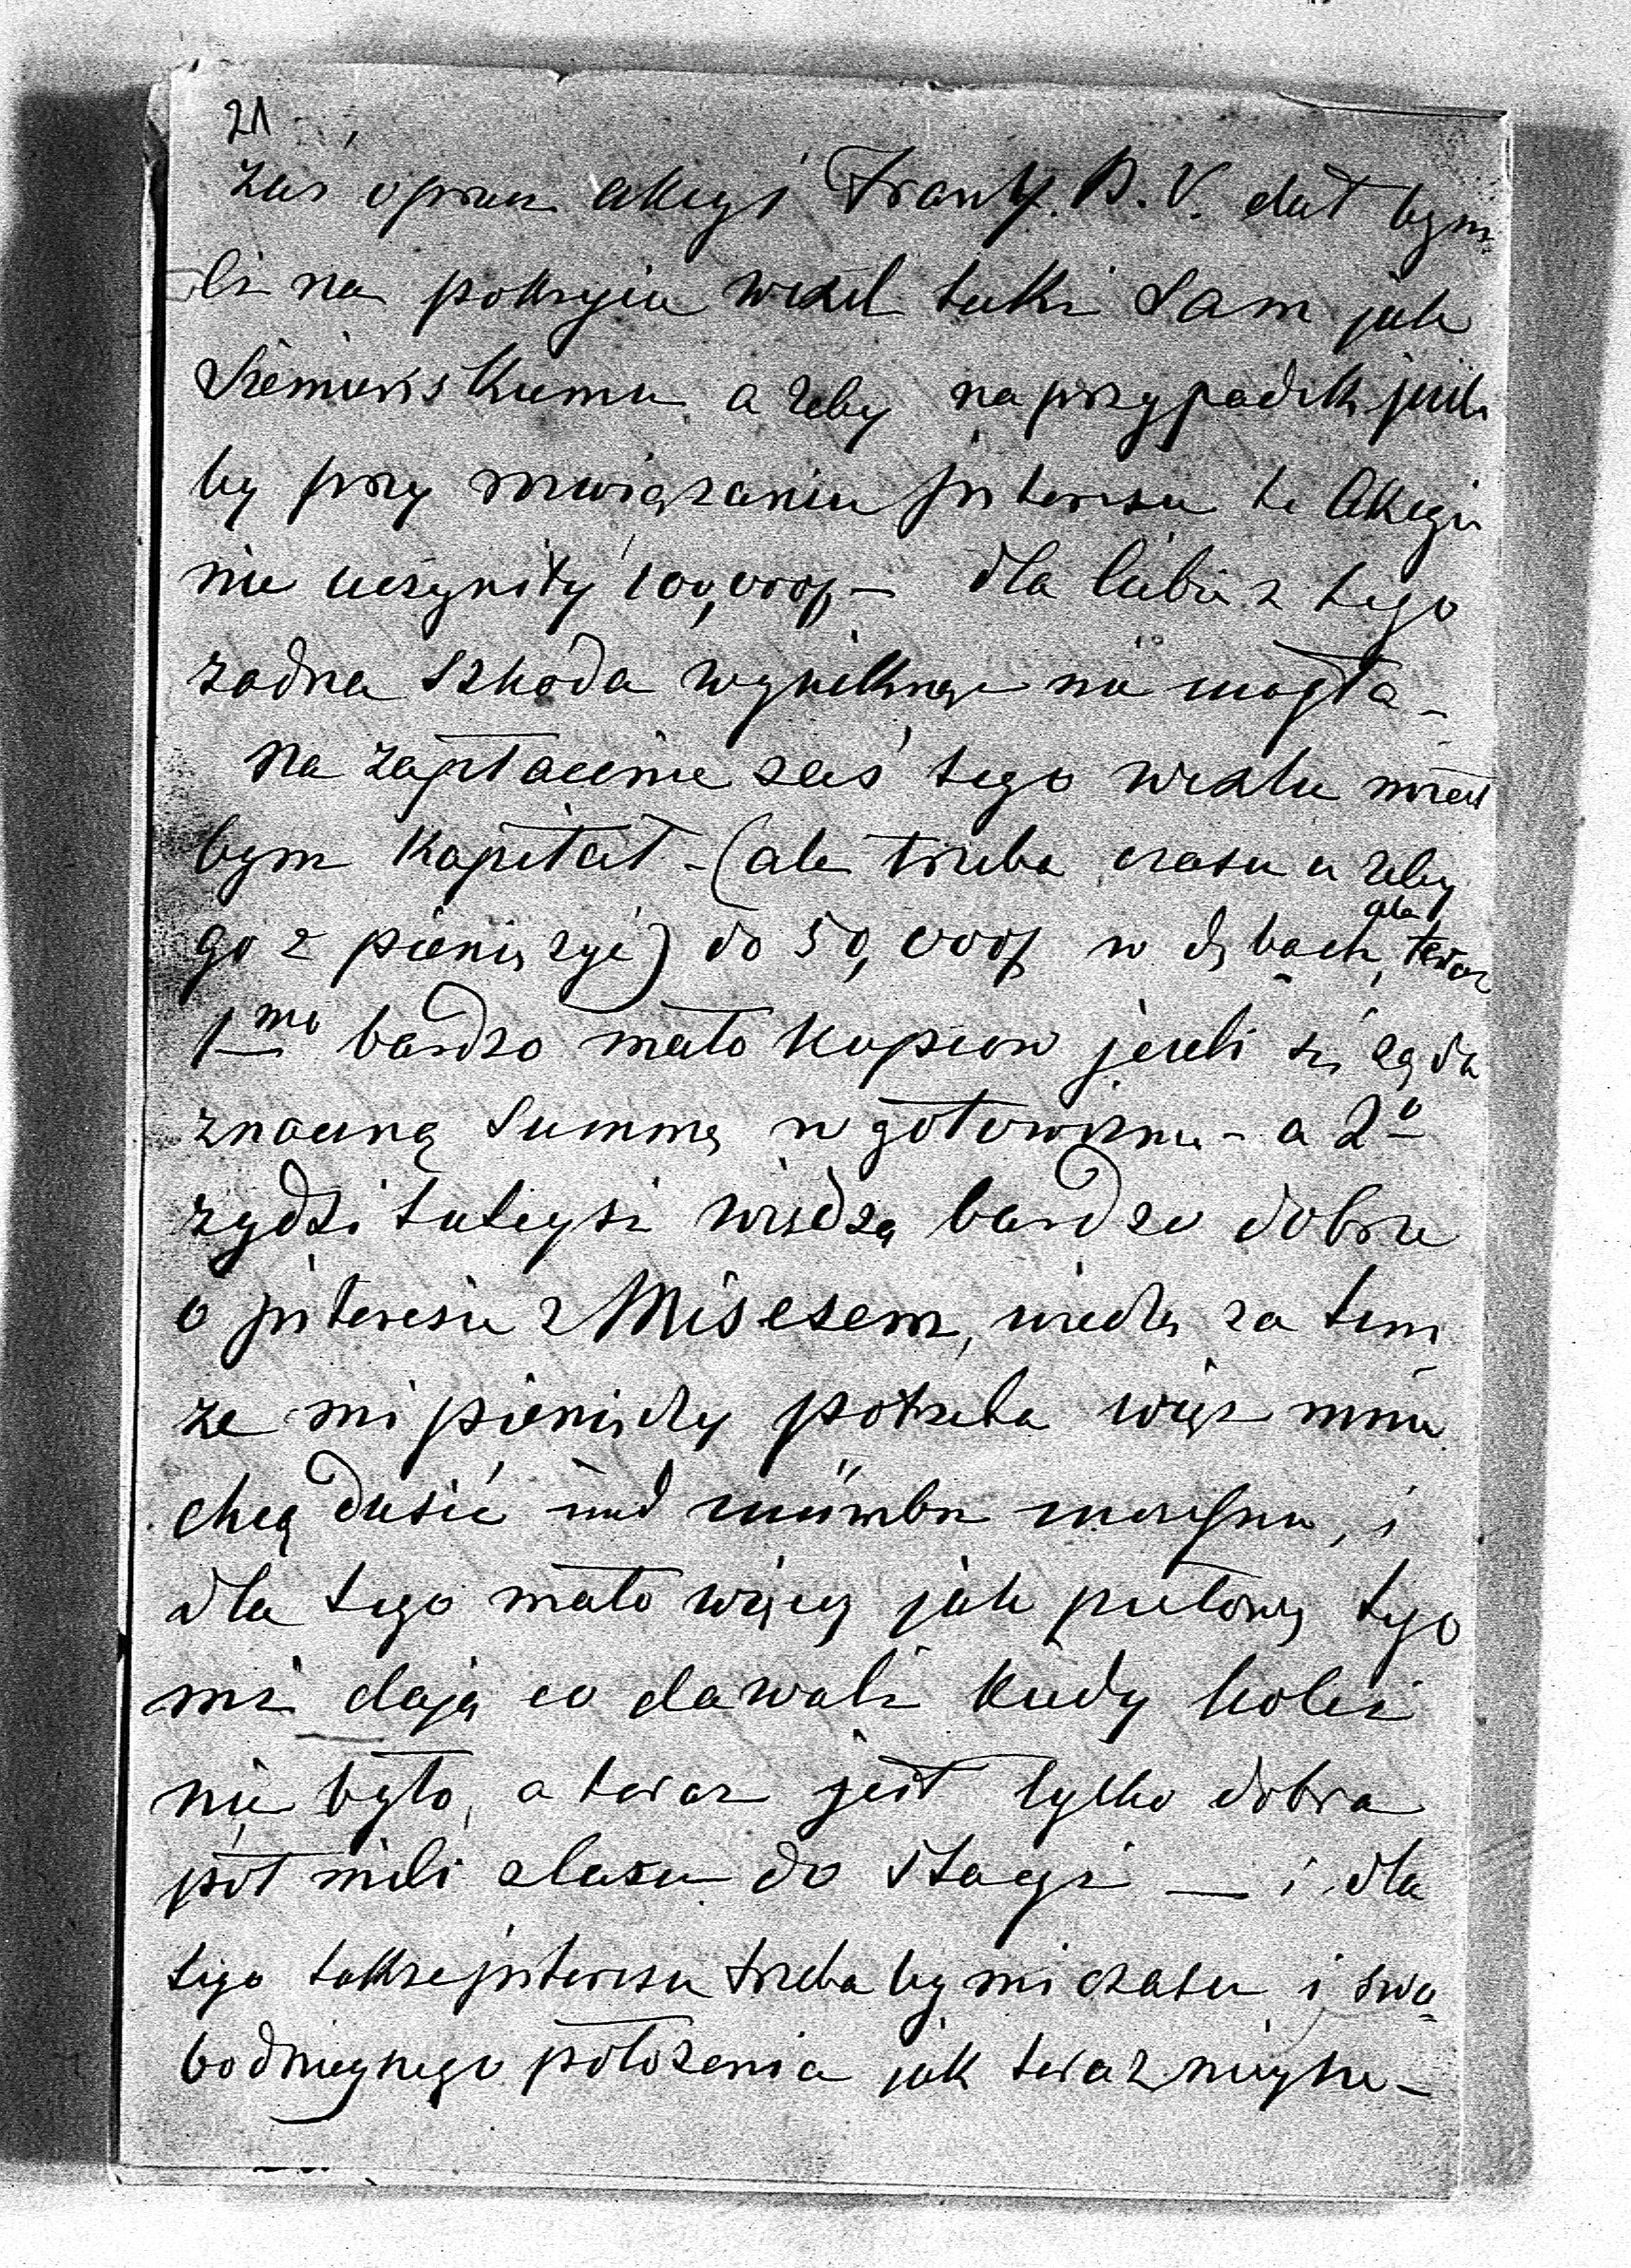 21
zaś oprócz akcyi Frank. B. V. dał bym
Ci na pokrycie wexel taki sam jak
Siemieńskiemu ażeby na przypadek jeżeli
by przy rozwiązaniu interesu te Akcye
nie uczyniły 100,000f – dla Ciebie z tego
żadna szkoda wyniknąć nie mogła –
na zapłacenie zaś tego wexlu miał
bym Kapitał – (ale trzeba czasu ażeby
go spieniężyć) do 50,000f w dębach, ale teraz
1mo bardzo mało Kupców jeżeli się żąda
znaczną Summę w gotowiznie – a 2o
żydzi tutejsi wiedzą bardzo dobrze
o interesie z Misesem, wiedzą za tem
że mi pieniędzy potrzeba więc mnie
chcą dusić i
dla tego mało więcej jak połowę tego
mi dają co dawali kiedy kolei
nie było, a teraz jest tylko dobra
pół mili z lasu do stacyi — i dla
tego także interesu trzeba by mi czasu i swo-
bodniejszego położenia jak teraźniejsze –